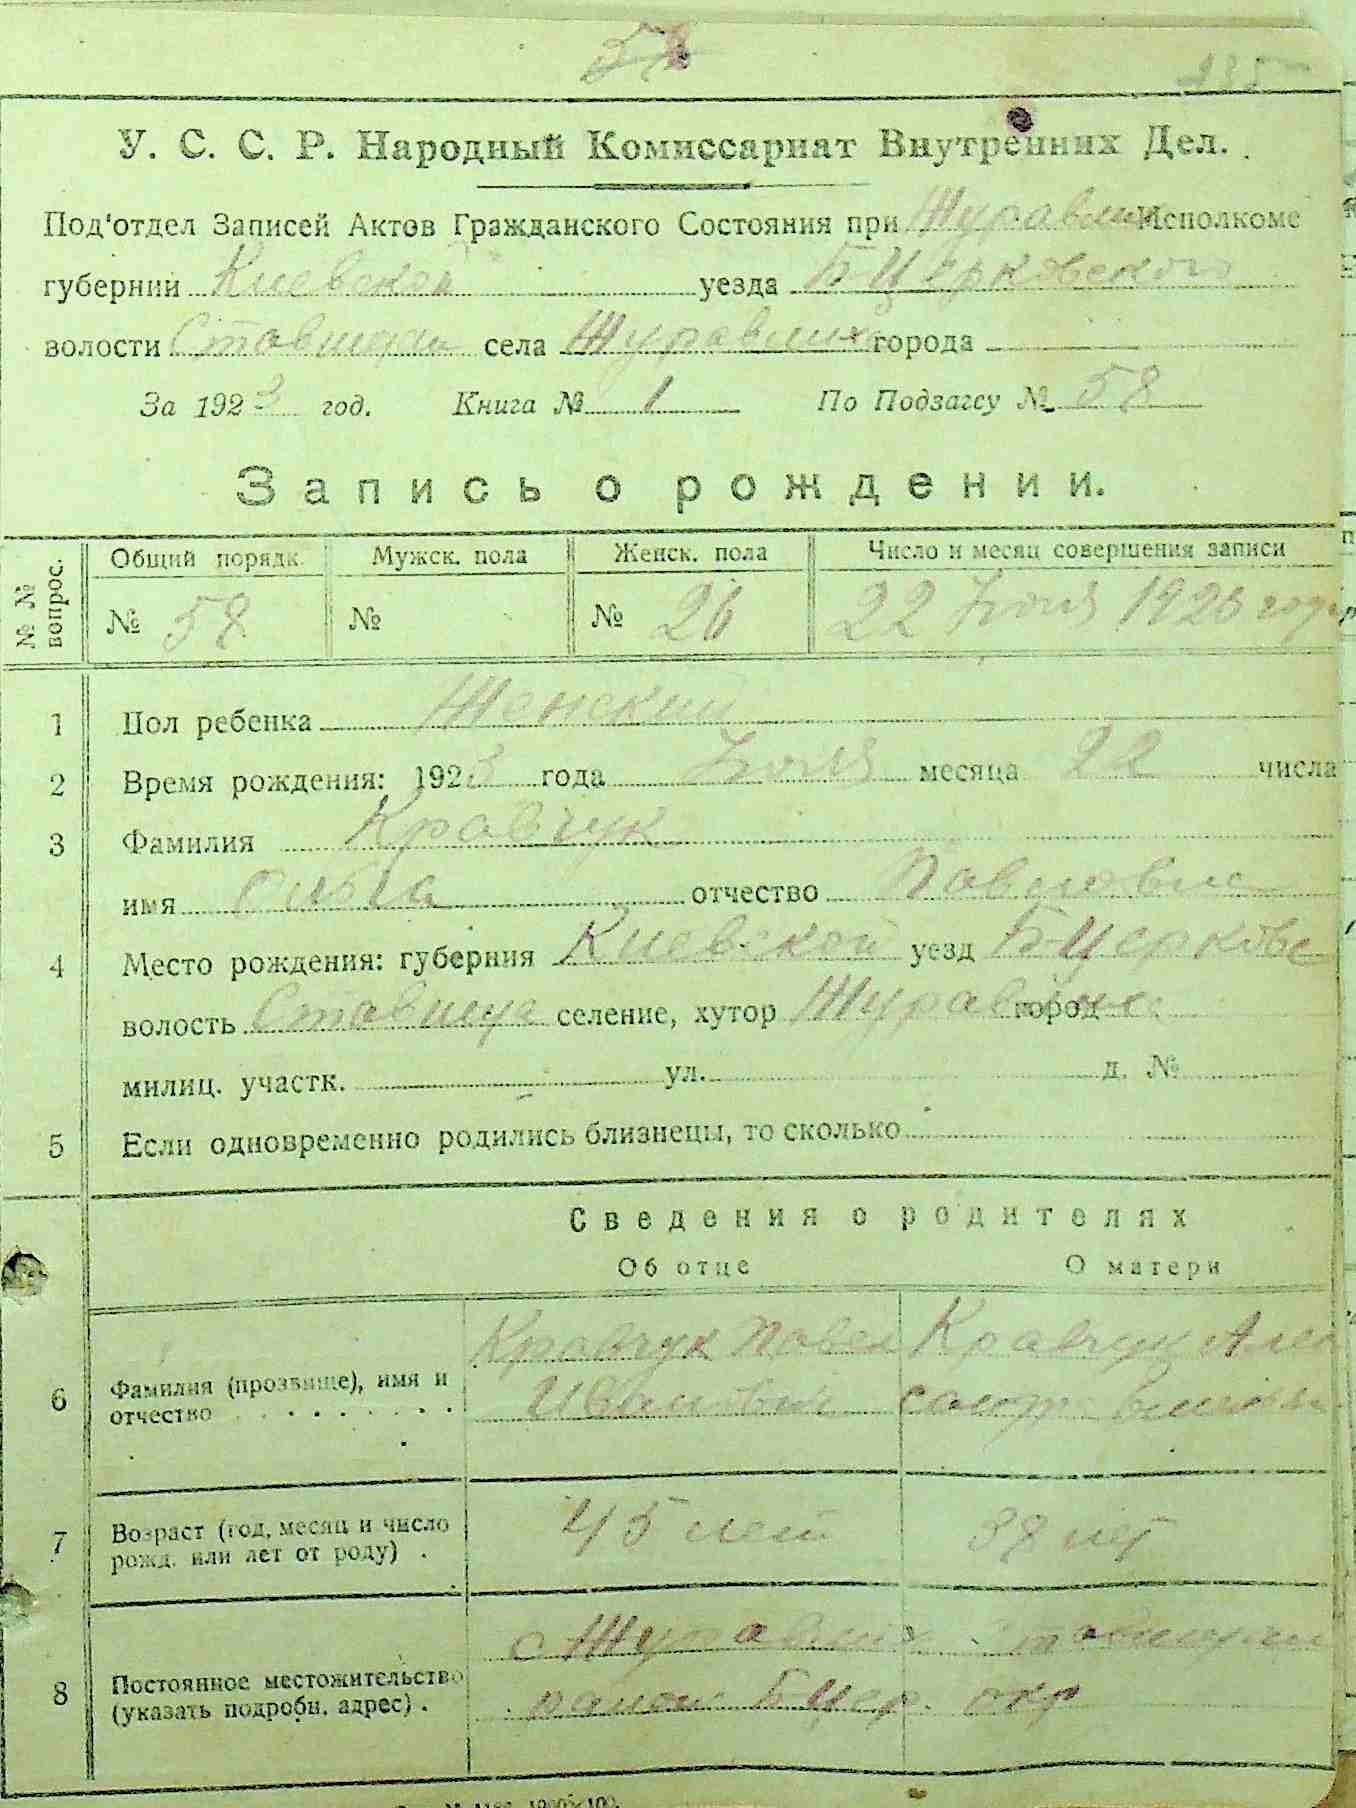 58
135
У. С. С. Р. Народный Комиссариат Внутренних Дел.
Под'отдел Записей Актов Гражданского Состояния при Журавлих Исполкоме
губернии Киевской уезда Б-Церковского
волости села Журавлиха города
За 1923 год. Книга № 1 По Подзагсу № 58
Запись о рождении.
№ № вопрос. Общий порядк. Мужск. пола Женск. пола Число и месяц совершения записи
№ 58 № № 26 22 1923 года
1 Пол ребенка Женский
2 Время рождения: 1923 года месяца 22 числа
3 Фамилия Кравчук
имя Ольга отчество Павловна
4 Место рождения: губерния Киевской уезд Б-Церковс
волость Ставища селение, хутор город
милиц. участк. ул. д. №
5 Если одновременно родились близнецы, то сколько
Сведения о родителях
Об отце О матери
Кравчук Павел Кравчук Алек
6 Фамилия (прозвище), имя и отчество Иванович
7 Возраст (год, месяц и число рожд. или лет от роду) . 45 лет 38 лет
8 Постоянное местожительство (указать подробн. адрес) . с Журавлиха
Б Цер. окр